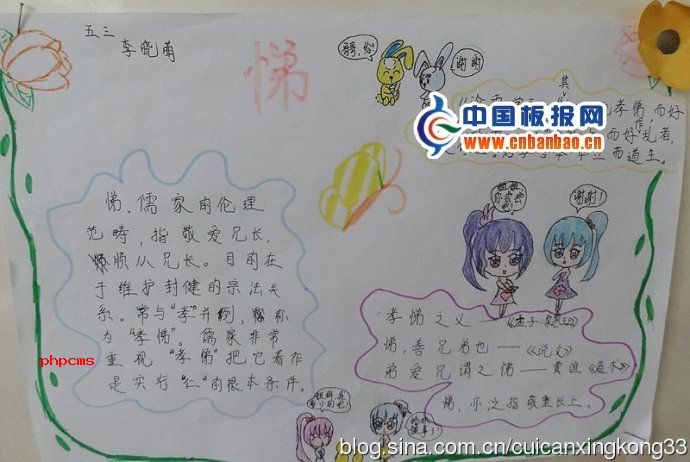 五三
李晓萌
悌
谢谢
其
孝悌,而好
作
而好乱者,
而道生。
中国板报网
www.cnbanbao.cn
悌,儒家的伦理
范畴,指敬爱兄长,
顺从兄长。目的在
于维护封健的宗法关
系。常与“孝”并例,称
为“孝悌”。儒家非常
重视“孝悌”把它看作
是实行“仁”的根本条件。
phpcms
姐姐
你尝尝
吧!
谢谢!
孝悌之义——《孟子·梁惠王》
悌,善兄弟也——《说文》
弟爱兄谓之悌——贾谊《道术》
悌,亦泛指敬重长上。
blog.sina.com.cn/cuicanxingkong33